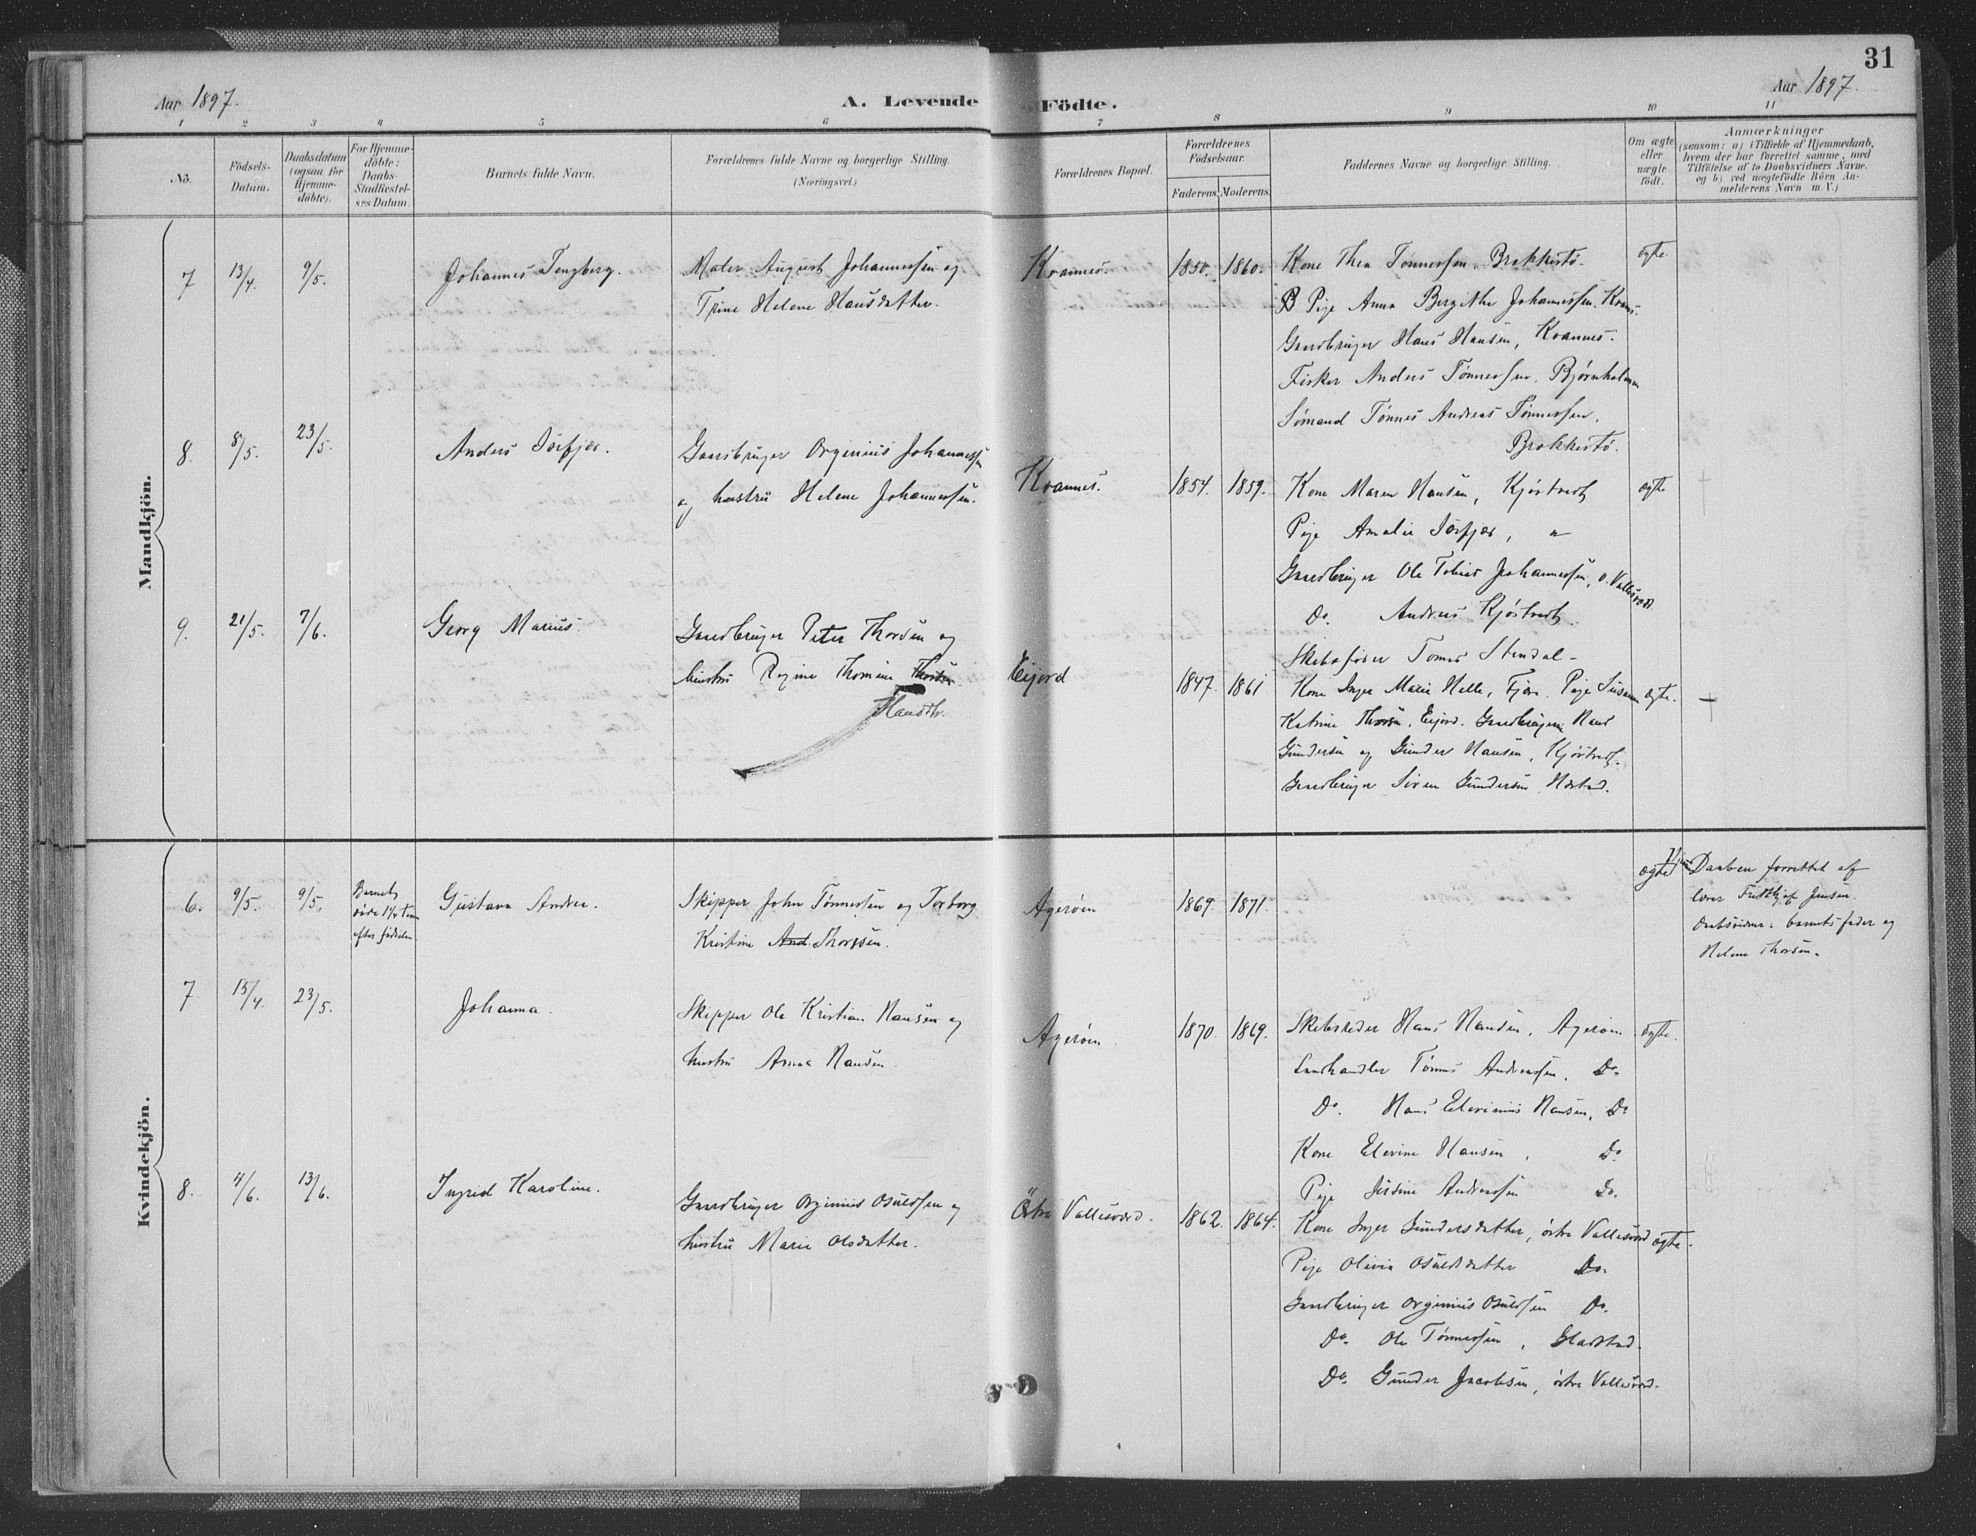 31
Aar 1897.
A. Levende Födte.
Aar 1897.
1 2 3 4 5 6 7 8 9 10 11
No.
Födsels-Datum.
Daabsdatum (ogsaa for Hjemme-döbte).
For Hjemme-döbte: Daabs-Stadfæstel-ses Datum.
Barnets fulde Navn.
Forældrenes fulde Navne og borgerlige Stilling. (Næringsvei.)
Forældrenes Bopæl.
Forældrenes Födselsaar.
Faderens. Moderens.
Faddernes Navne og borgerlige Stilling.
Om ægte eller uægte födt.
Anmærkninger
(saasom: a) i Tilfælde af Hjemmedaab, hvem der har forrettet samme, med Tilföielse af to Daabsvidners Navne. og b) ved uægtefödte Börn Anmelderens Navn m. V.)
Mandkjön.
7 13/4. 9/5. Johannes Tengberg. Maler August Johannessen og
Trine Helene Hansdatter.
Kvannes. 1850. 1860. Kone Thea Tønnessen, Brekkestø. ægte.
Pige Anna Bergithe Johannessen. Kvannes.
Gaardbruger Hans Hansen, Kvannes.
Fisker Anders Tønnessen. Bjørnholmen
Sømand Tønnes Andreas Tønnessen,
Brekkestø.
8. 8/5. 23/5. Anders Isefjær. Gaardbruger Orginius Johannessen
og hustru Helene Johannessen.
Kvannes. 1854. 1859. Kone Maren Hansen, Kjøstvedt ægte
Pige Amalie Isefjær, "
Gaardbruger Ole Tobias Johannessen, ø. Vallesværd.
Do. Andreas Kjøstvedt.
Skibsfører Tomes Stendal-
9. 21/5. 7/6. Georg Marius. Gaardbruger Peter Thorsen og
hustru Regine Thomine Thorsen
Hansdtr.
Eijord 1847. 1861 Kone Inger Marie Helle, Fjære. Pige Susanne ægte.
Katrine Thorsen, Eijord. Gaardbrugerne Knud
Gundersen og Gunder Hansen, Kjøstvedt.
Gaardbruger Søren Gundersen Næstad.
Kvindekjön.
6. 9/5. 9/5. Barnet
efter fødselen
Gustava Andrea. Skipper John Tønnessen og Torborg
Kristine And. Thorssen.
Agerøen 1869. 1871. ægte
Daaben forrettet af
lærer Fridthjof Jensen.
Daabsvidner: barnets fader og
Helene Thorsen.
7. 15/4. 23/5. Johanna. Skipper Ole Kristian Hansen og
hustru Anna Hansen.
Agerøen. 1870. 1869. Skibsreder Hans Hansen, Agerøen. ægte.
Landhandler Tønnes Andreassen. Do.
Do. Hans Elevinius Hansen, Do
Kone Elevine Hansen, Do.
Pige Jensine Andreassen Do.
8. 4/6. 13/6. Ingrid Karoline. Gaardbruger Orginius Osuldsen og
hustru Marie Olsdatter.
Østre Vallesværd. 1862. 1864. Kone Inger Gundersdatter, østre Vallesværd ægte.
Pige Olivia Osuldsdatter Do.
Gaardbruger Orginius Osuldsen Do.
Do. Ole Tønnessen, Gladstad.
Do. Gunder Jacobsen, østre Vallesværd.